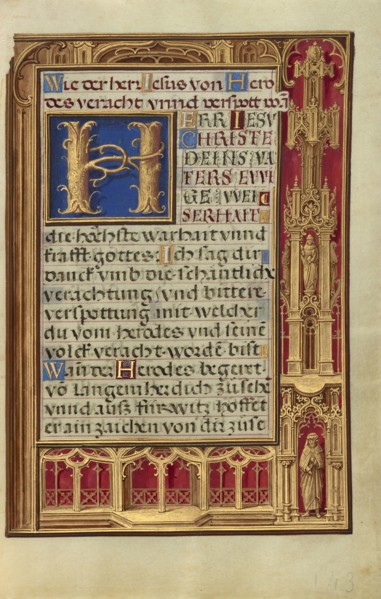 Wie der herr Jesus von Hero
des veracht vnnd verspott wa
HERR IESV
CHRISTE
DEINS VA
TERS EWI
GE WEIS
SERHAIT
die höchste warhait vnnd
krafft gottes. Ich sag dir
danck vmb die schantliche
verachtung vnd bittere
verspottung mit welcher
du vom Herodes vnd seinem
volck veracht worden bist
Wan der Herodes begeret
vō langem her dich zu sehē
vnnd auß fürwitz hoffet
er ain zaichen von dir zuse